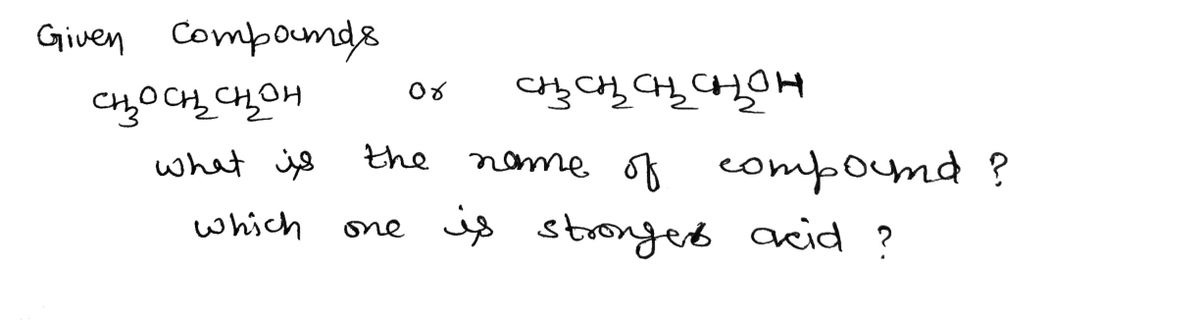 Given Compounds
CH₃OCH₂CH₂OH or CH₃CH₂CH₂CH₂OH
what is the name of compound ?
which one is stronger acid ?